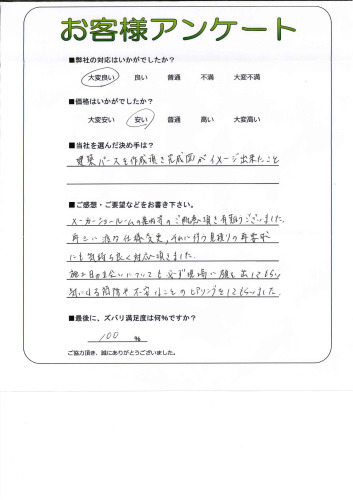 お客様アンケート
■弊社の対応はいかがでしたか?
大変良い 良い 普通 不満 大変不満
■価格はいかがでしたか?
大変安い 安い 普通 高い 大変高い
■当社を選んだ決め手は?
建築パースを作成頂き完成図がイメージ出来たこと
■ご感想・ご要望などをお書き下さい。
メーカーショールームの案内等のご配慮頂き有難うございました。
仕様変更、それに伴う見積りの再要求
にも気持ち良く対応頂きました。
必ず現場に顔を出してもらい
気になる箇所や不安なことのヒアリングをしてもらいました。
■最後に、ズバリ満足度は何%ですか?
100 %
ご協力頂き、誠にありがとうございました。